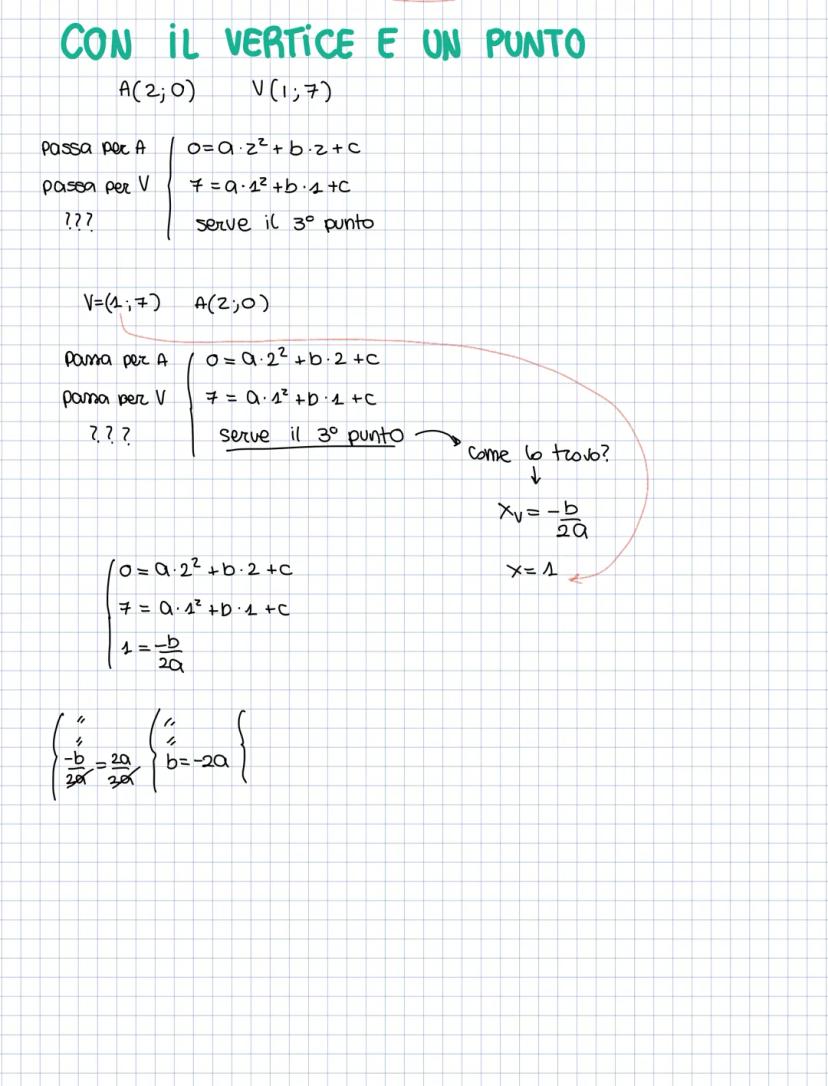 CON iL VERTiCE E UN PUNTO
A(2;0) V(1;7)
passa per A 0=a·2²+b·2+c
passa per V 7=a·1²+b·1+c
??? serve il 3° punto
V=(1;7) A(2;0)
passa per A 0=a·2²+b·2+c
passa per V 7=a·1²+b·1+c
??? serve il 3° punto
Come lo trovo?
↓
xᵥ = -b/2a
x=1
0=a·2²+b·2+c
7=a·1²+b·1+c
1=-b/2a
" "
" "
-b/2a = 2a/2a b=-2a